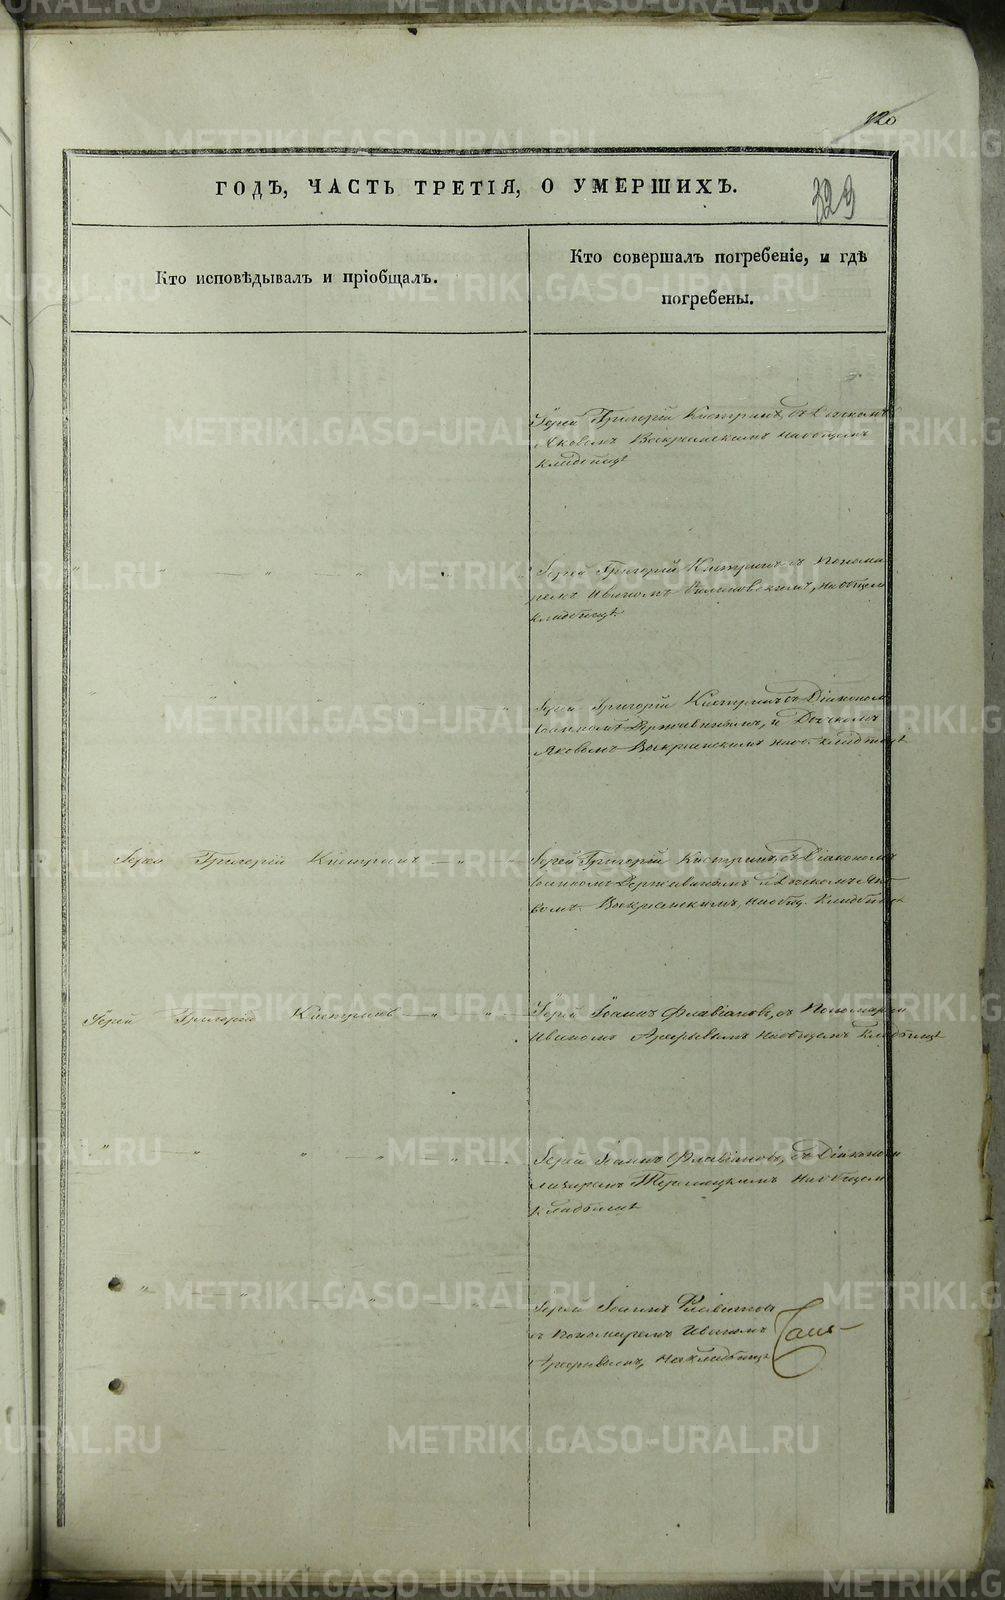 120
329
ГОДЪ, ЧАСТЬ ТРЕТІЯ, О УМЕРШИХЪ.
Кто исповѣдывалъ и пріобщалъ.
Кто совершалъ погребеніе, и гдѣ
погребены.
Іерей Григорій Кистринъ, съ Дьячкомъ
Яковомъ Воскресенскимъ на общемъ
кладбищѣ
Іерей Григорій Кистринъ съ Понома-
ремъ Иваномъ на общем
кладбищѣ
Іерей Григорій Кистринъ съ Діакономъ
Іоанномъ Державинымъ, и Дьячкомъ
Яковомъ Воскресенскимъ на об. кладбищѣ
Іерей Григорій Кистринъ
Іерей Григорій Кистринъ, съ Діакономъ
Іоанномъ Державинымъ и Дьячкомъ Яко-
вомъ Воскресенскимъ, на общ. Кладбищѣ
Іерей Григорій Кистринъ
Іерей Іоаннъ Флавіановъ, съ Пономаремъ
Иваномъ на общемъ Кладбищѣ
Іерей Іоаннъ Флавіановъ, съ Діакономъ
на общемъ
кладбищѣ
Іерей Іоаннъ Флавіановъ
съ Пономаремъ Иваномъ
на кладбищѣ
METRIKI.GASO-URAL.RU